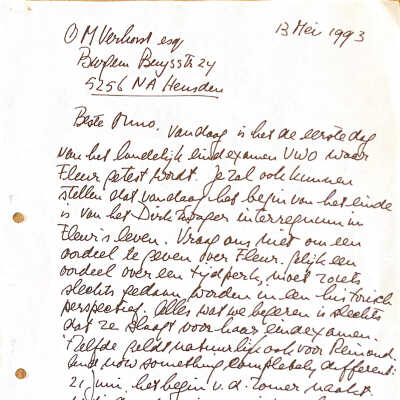 O M Verhorst esq 13 Mei 1993
Burgem Buysstr 24
5256 NA Heusden
Beste Onno. Vandaag is het de eerste dag
van het landelijk eindexamen VWO waar
Fleur getest wordt. Je zal ook kunnen
stellen dat vandaag het begin van het einde
is van het Dirk interregnum in
Fleur's leven. Vraag ons niet om een
oordeel te geven over Fleur. Gelijk een
oordeel over een tijdperk, moet zoiets
slechts gedaan worden in een historisch
perspectief. Alles wat we begeren is slechts
dat ze slaagt voor haar eindexamen.
'Tzelfde geldt natuurlijk ook voor Reinoud.
And now something completely different:
21 juni. het begin v.d. zomer nacht